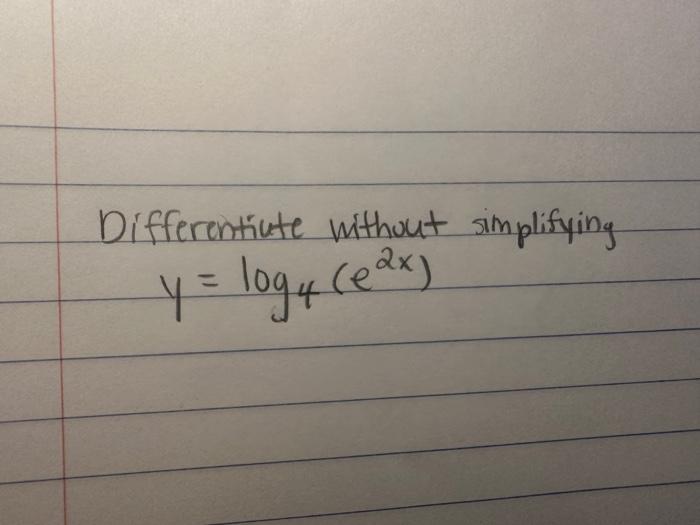 Differentiate without simplifying
y = log₄ (e²ˣ)